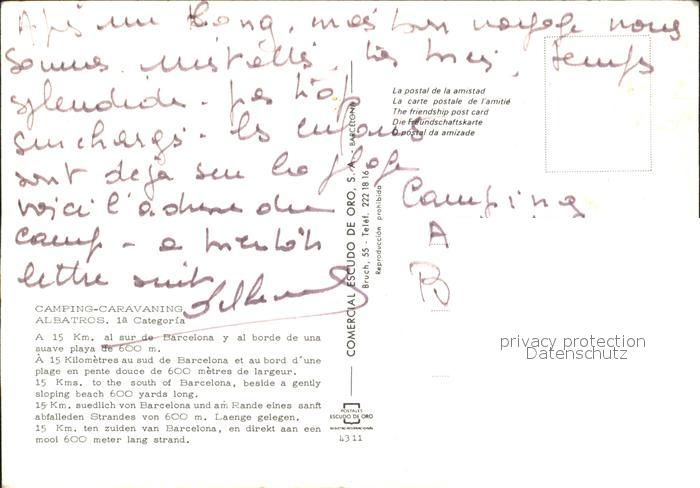 Après un long, mais bon voyage nous
sommes installés. très bien, temps
splendide. pas trop
surchargé. les enfants
sont déjà sur la plage
voici l'adresse du
camp - a bientôt
lettre suit
Camping
A
B
La postal de la amistad
La carte postale de l'amitié
The friendship post card
Die Freundschaftskarte
O postal da amizade
COMERCIAL ESCUDO DE ORO, S. A. - BARCELONA
Bruch, 55 - Teléf. 222 18 16
Reproducción prohibida
CAMPING-CARAVANING
ALBATROS. 1ª Categoría
A 15 Km. al sur de Barcelona y al borde de una
suave playa de 600 m.
À 15 Kilomètres au sud de Barcelone et au bord d'une
plage en pente douce de 600 mètres de largeur.
15 Kms. to the south of Barcelona, beside a gently
sloping beach 600 yards long.
15 Km. suedlich von Barcelona und am Rande eines sanft
abfallenden Strandes von 600 m. Laenge gelegen.
15 Km. ten zuiden van Barcelona, en direkt aan een
mooi 600 meter lang strand.
POSTALES
ESCUDO DE ORO
4311
privacy protection
Datenschutz